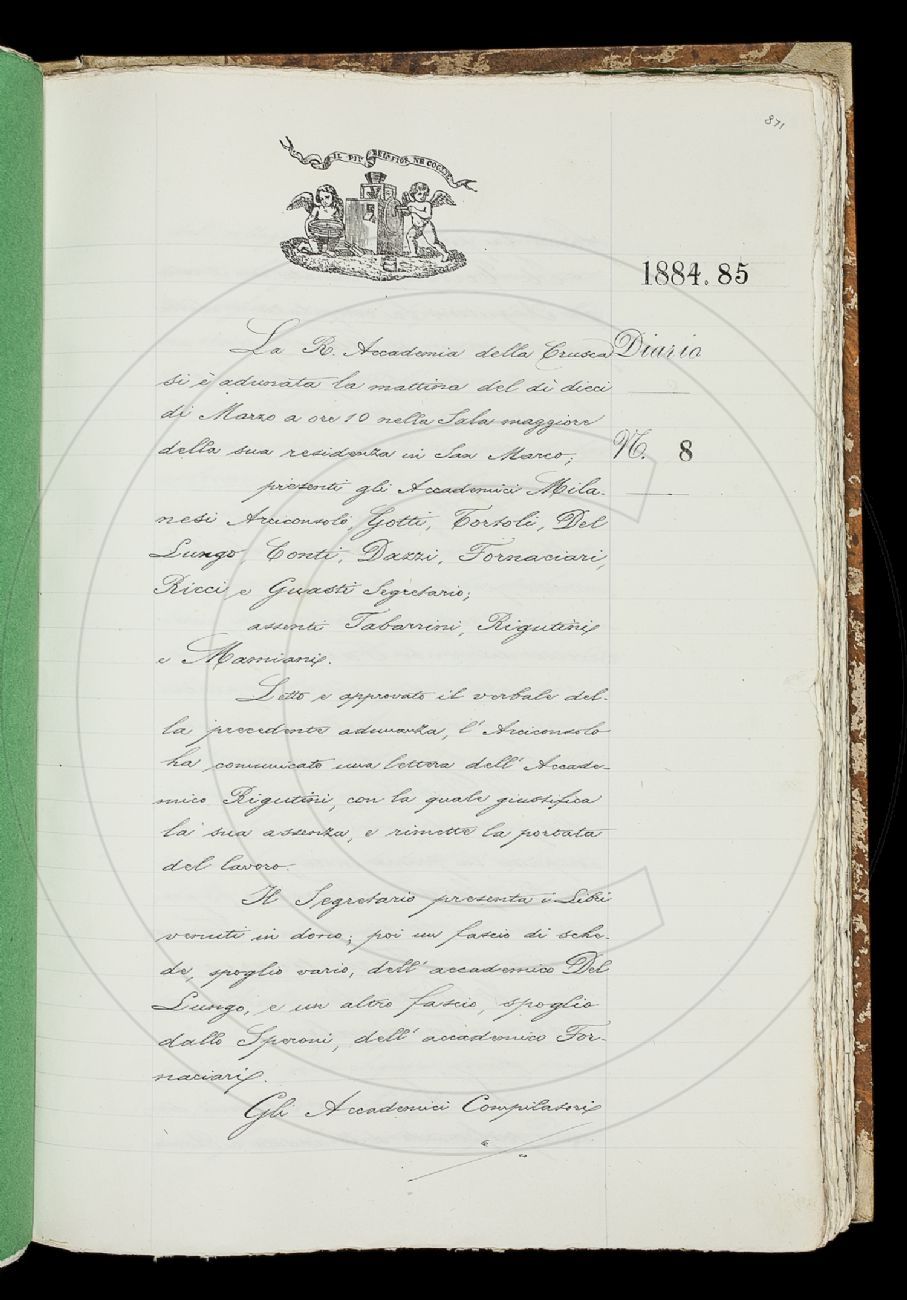 871
IL PIÙ BEL FIOR NE COGLIE
1884. 85
La R. Accademia della Crusca
Diario
si è adunata la mattina del dì dieci
di Marzo a ore 10 nella Sala maggiore
della sua residenza in San Marco;
N. 8
presenti gli Accademici Mila-
nesi Arciconsolo, Gotti, Tortoli, Del
Lungo, Conti, Dazzi, Fornaciari,
Ricci e Guasti Segretario;
assenti Tabarrini, Rigutini
e Mamiani.
Letto e approvato il verbale del-
la precedente adunanza, l'Arciconsolo
ha comunicato una lettera dell'Accade-
mico Rigutini, con la quale giustifica
la sua assenza, e rimette la portata
del lavoro.
Il Segretario presenta i Libri
venuti in dono; poi un fascio di sche-
de, spoglio vario, dell'accademico Del
Lungo, e un altro fascio, spoglio
dallo Speroni, dell'accademico For-
naciari.
Gli Accademici Compilatori